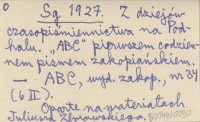 Sg 1927. Z dziejów
czasopiśmiennictwa na Pod-
halu. "ABC" pierwszem codzien-
nem pismem zakopiańskiem.
— ABC, wyd. zakop., nr 34
(6 II).
Oparte na materjałach
Juliusza Zborowskiego.